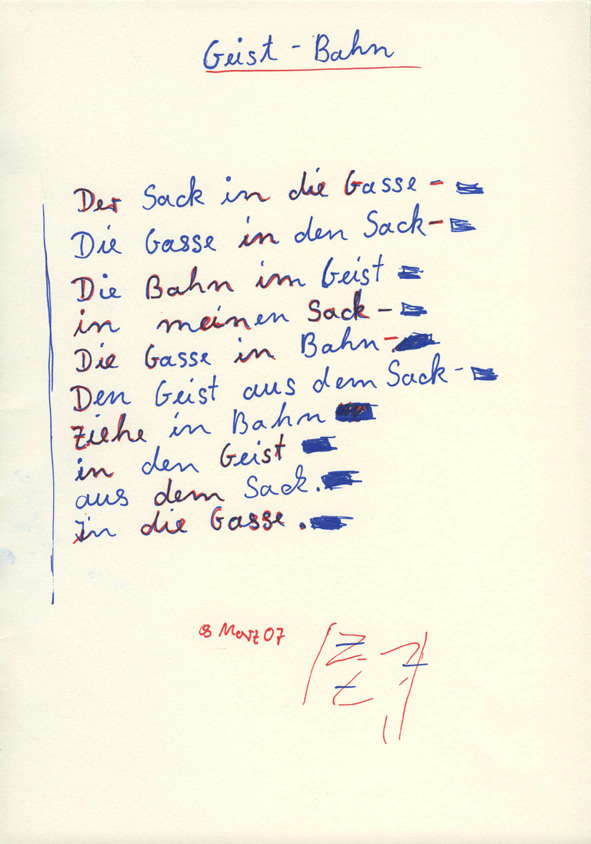 Geist - Bahn
Der Sack in die Gasse -
Die Gasse in den Sack -
Die Bahn im Geist
in meinen Sack -
Die Gasse in Bahn -
Den Geist aus dem Sack -
Ziehe in Bahn
in den Geist
aus dem Sack.
In die Gasse.
8 März 07